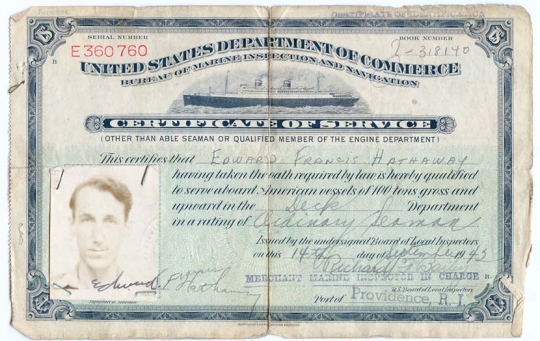 SERIAL NUMBER
E360760
BOOK NUMBER
UNITED STATES DEPARTMENT OF COMMERCE
BUREAU OF MARINE INSPECTION AND NAVIGATION
CERTIFICATE OF SERVICE
(OTHER THAN ABLE SEAMAN OR QUALIFIED MEMBER OF THE ENGINE DEPARTMENT)
This certifies that EDWARD FRANCIS HATHAWAY
having taken the oath required by law is hereby qualified
to serve aboard American vessels of 100 tons gross and
upward in the Deck Department
in a rating of Ordinary Seaman
Issued by the undersigned Board of Local Inspectors
on this 14th day of September 1943
Edward Francis
Hathaway
MERCHANT MARINE INSPECTOR IN CHARGE
U.S. Board of Local Inspectors
Port of Providence, R. I.